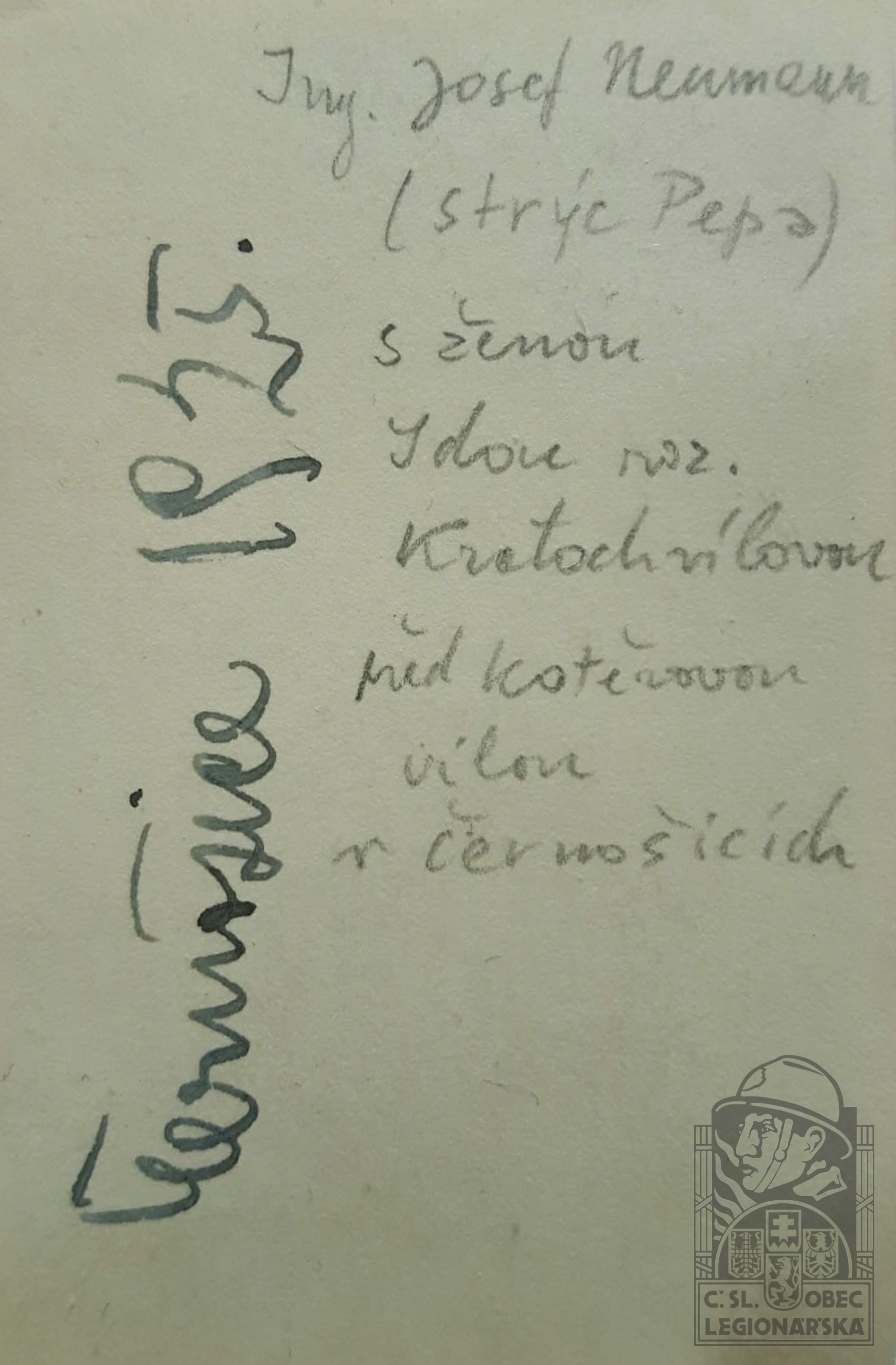 Ing. Josef Neumann
(strýc Pepa)
s ženou
Idou roz.
Kratochvílovou
před kotěrovou
vilou
v černošicích
Černošice
Č. SL. OBEC
LEGIONÁŘSKÁ